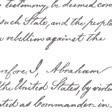 testimony, be deemed con
such State, and the people
rebellion against the
fore I, Abraham
the United States, by virtue
vested as Commander-in